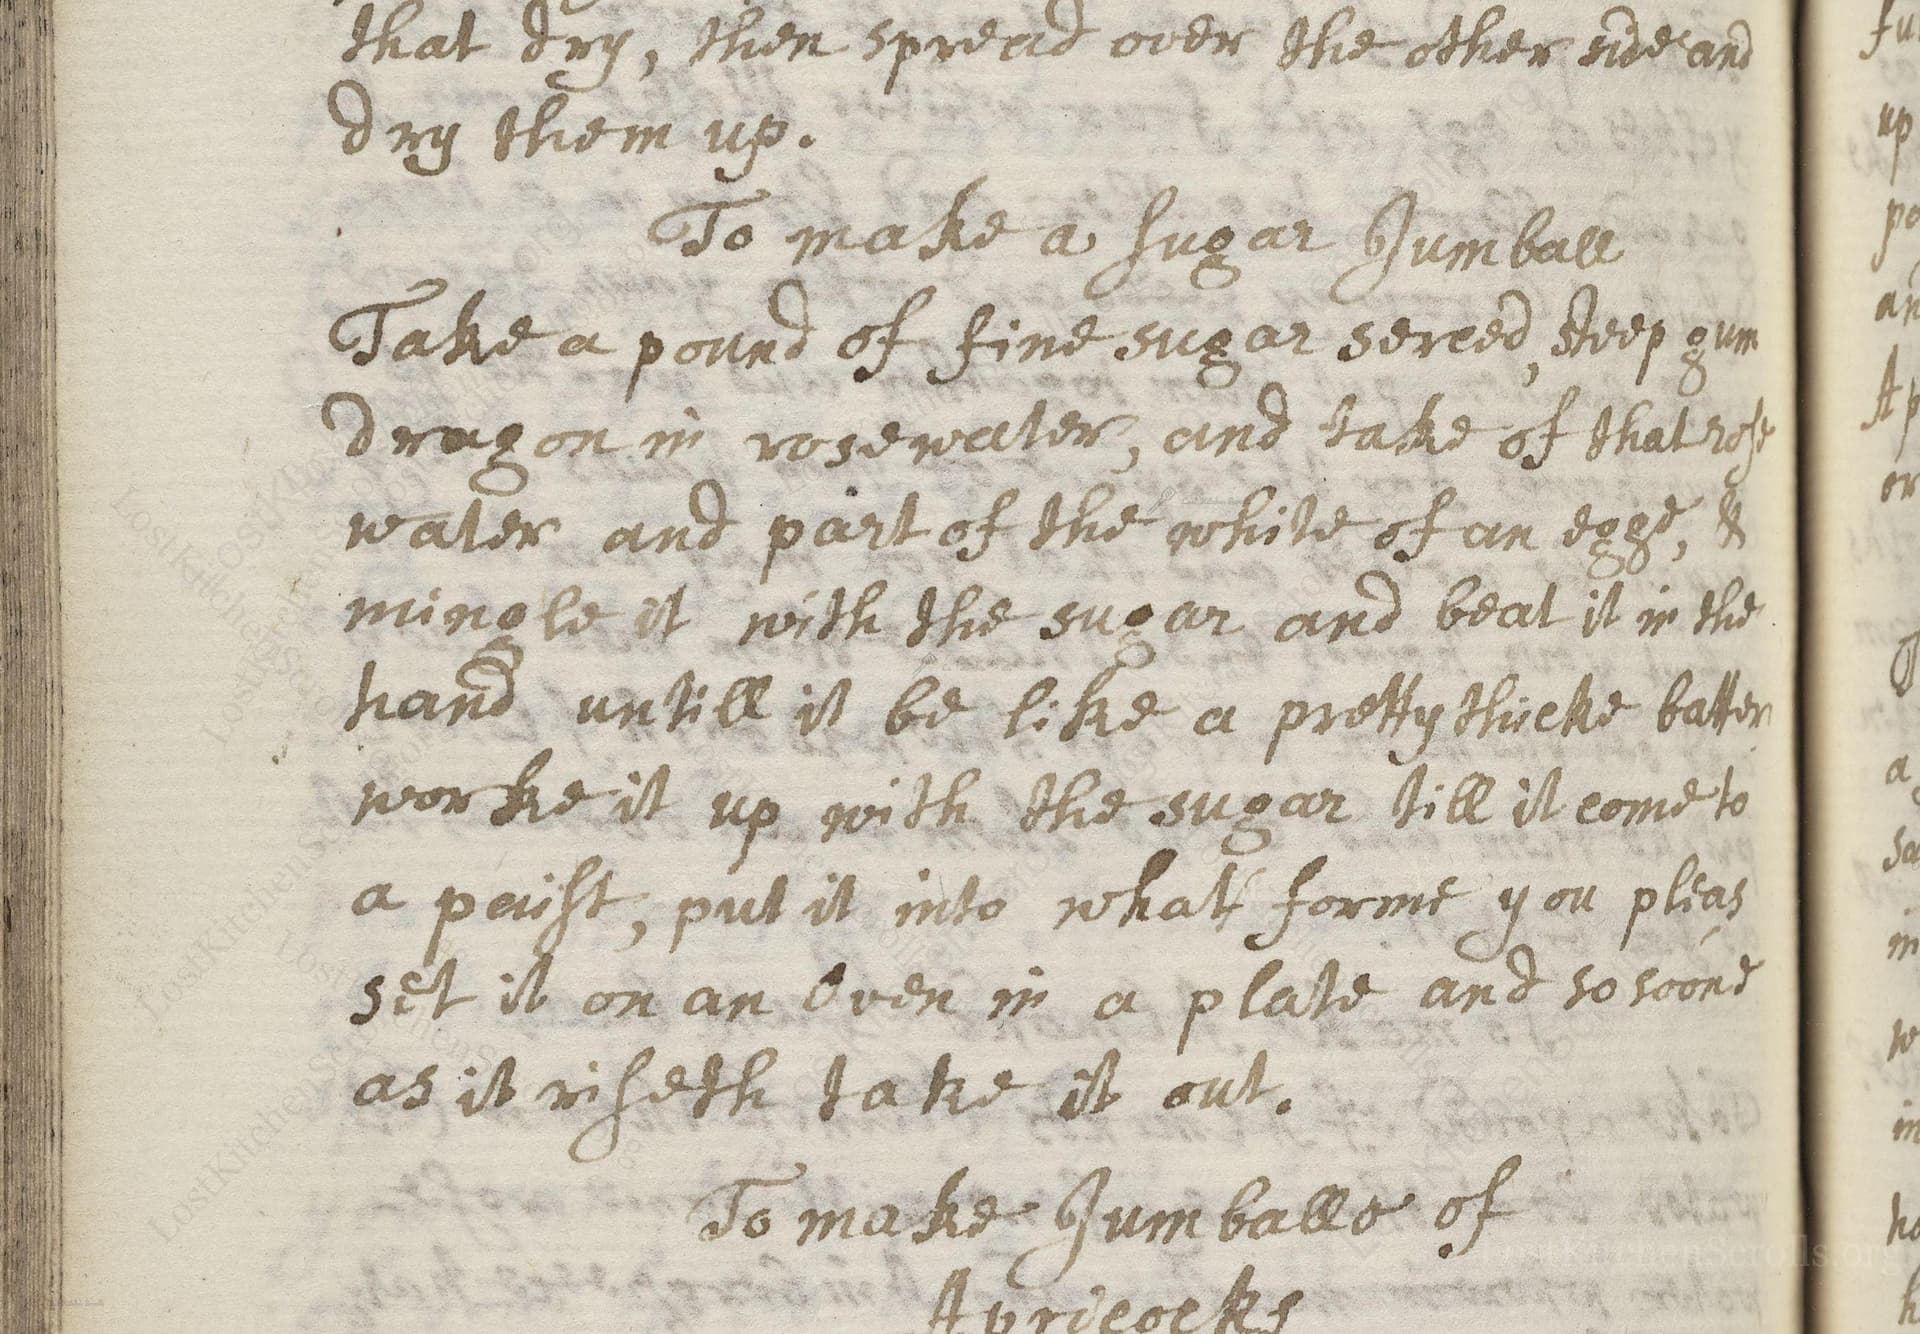 that dry, then spread over the other side and
dry them up.
To make a sugar Jumball
Take a pound of fine sugar serced, steep gum
dragon in rosewater, and take of that rose
water and part of the white of an egge, &
mingle it with the sugar and beat it in the
hand untill it be like a pretty thicke batter
worke it up with the sugar till it come to
a paist, put it into what forme you pleas
set it on an Oven in a plate and so soone
as it riseth take it out.
To make Jumballs of
Apricocks